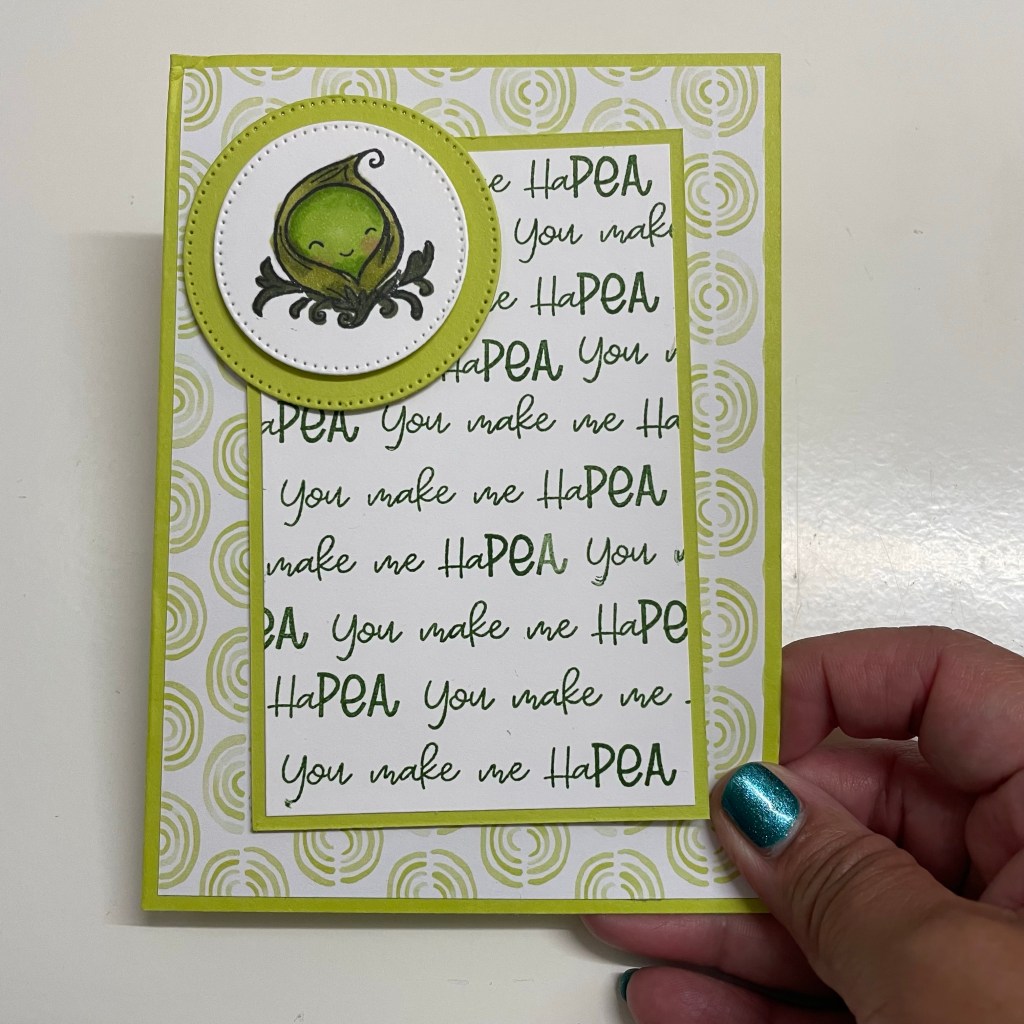 e HaPEA
You make
e HaPEA
HaPEA You
aPEA You make me Ha
You make me HaPEA
make me HaPEA You
PEA You make me HaPE
HaPEA You make me
You make me HaPEA